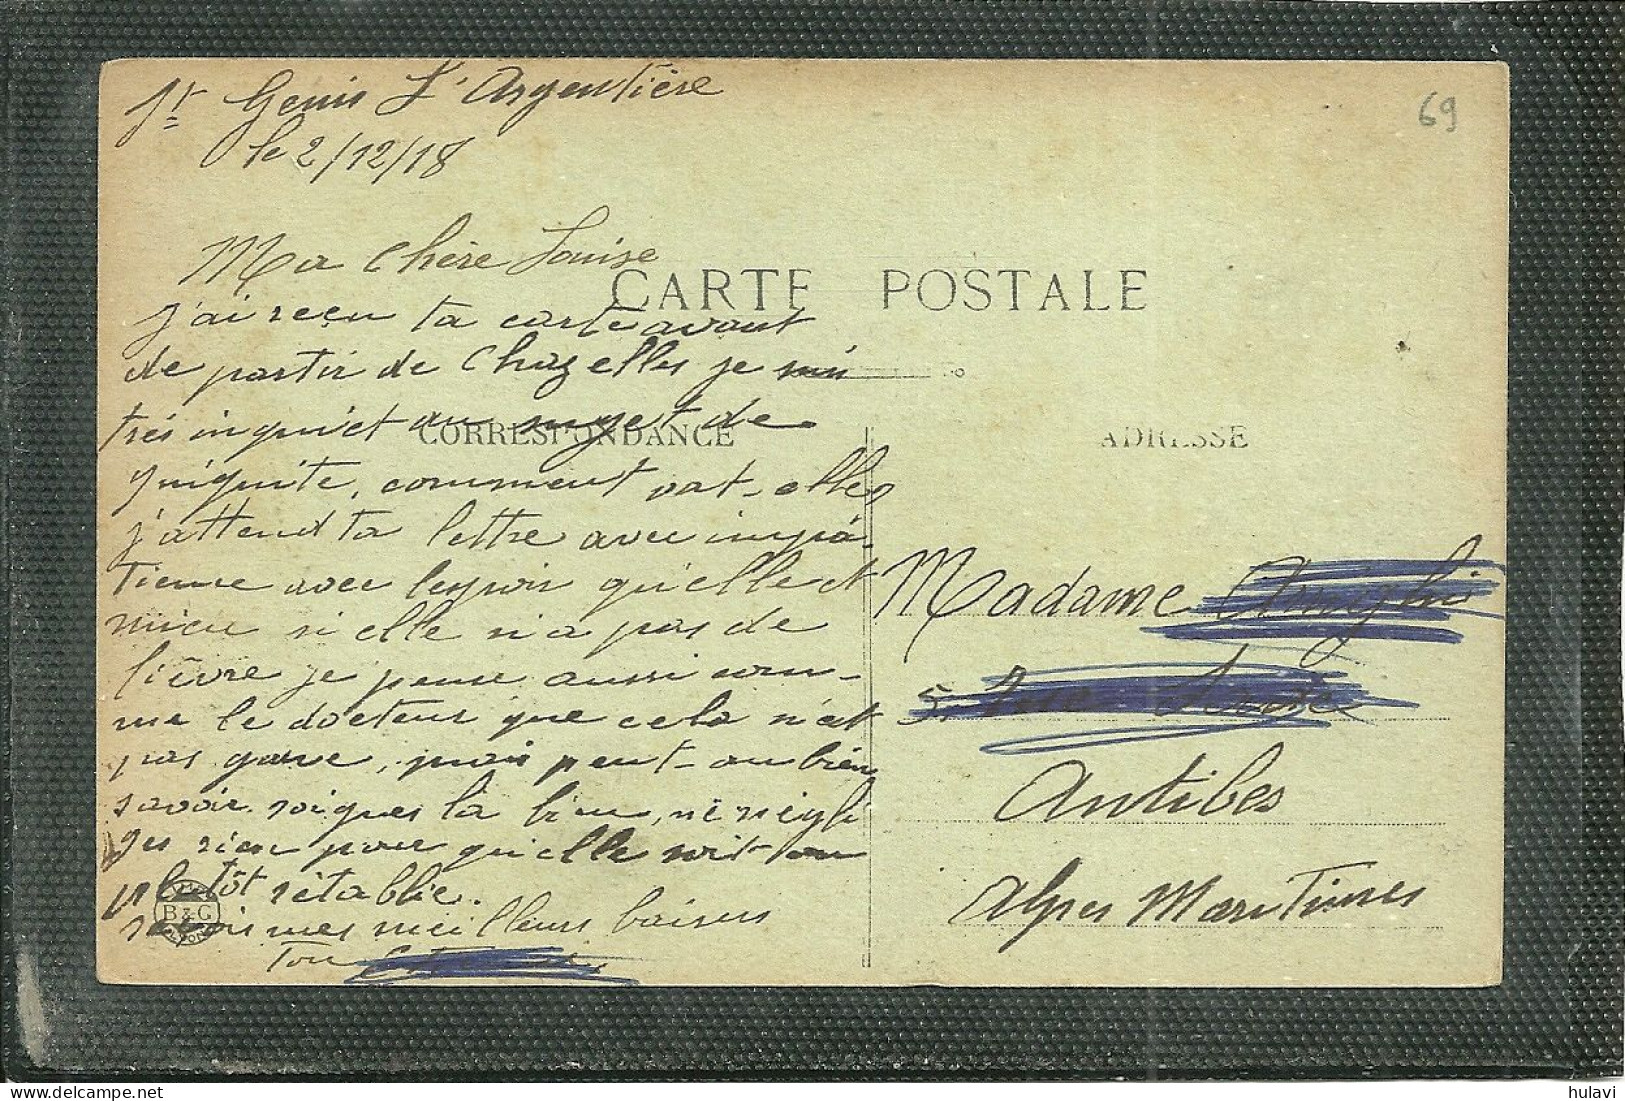 St Genis L'Argentière
69
le 2/12/18
Ma Chère Louise
CARTE POSTALE
j'ai reçu ta carte avant
de partir de Chazelles je suis
très inquiet au sujet de
CORRESPONDANCE
ADRESSE
quiquite, comment vat-elle,
j'attend ta lettre avec impa-
tience avec lespoir qu'elle et
mieu si elle n'a pas de
fièvre je pense aussi com-
me le docteur que cela n'est
pas gave, mais peut-on bien
savoir. soignes la bien, ne négli
ges rien pour qu'elle soit au
plutôt rétablie.
B&G
LYON
reçois mes meilleurs baisers
Ton
Madame
5,
Antibes
Alpes Maritimes
hulavi